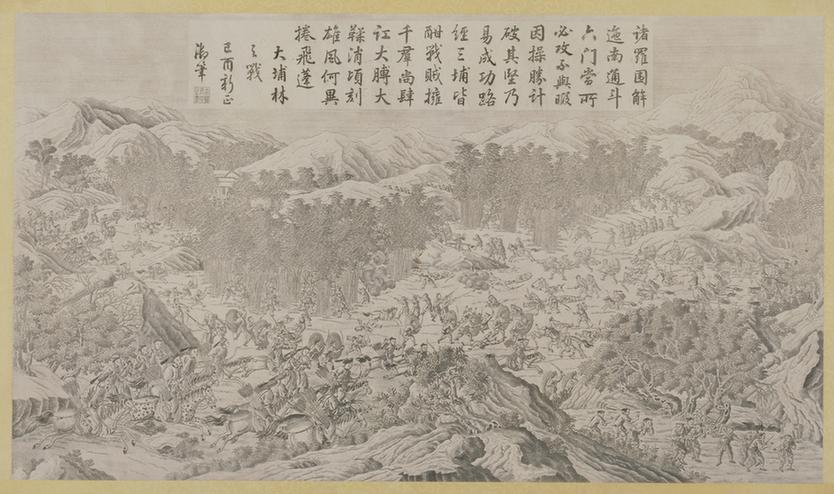 諸羅圍解
迤南通斗
六門當所
必攻不與暇
因操勝計
破其堅乃
易成功路
經三埔皆
酣戰賊擁
千群尚肆
訌大膊大
消頃刻
雄風何異
捲飛蓬
大埔林
之戰
己酉新正
御筆